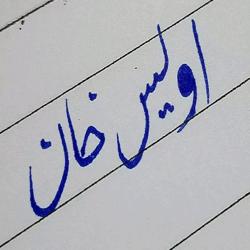 اویس خان